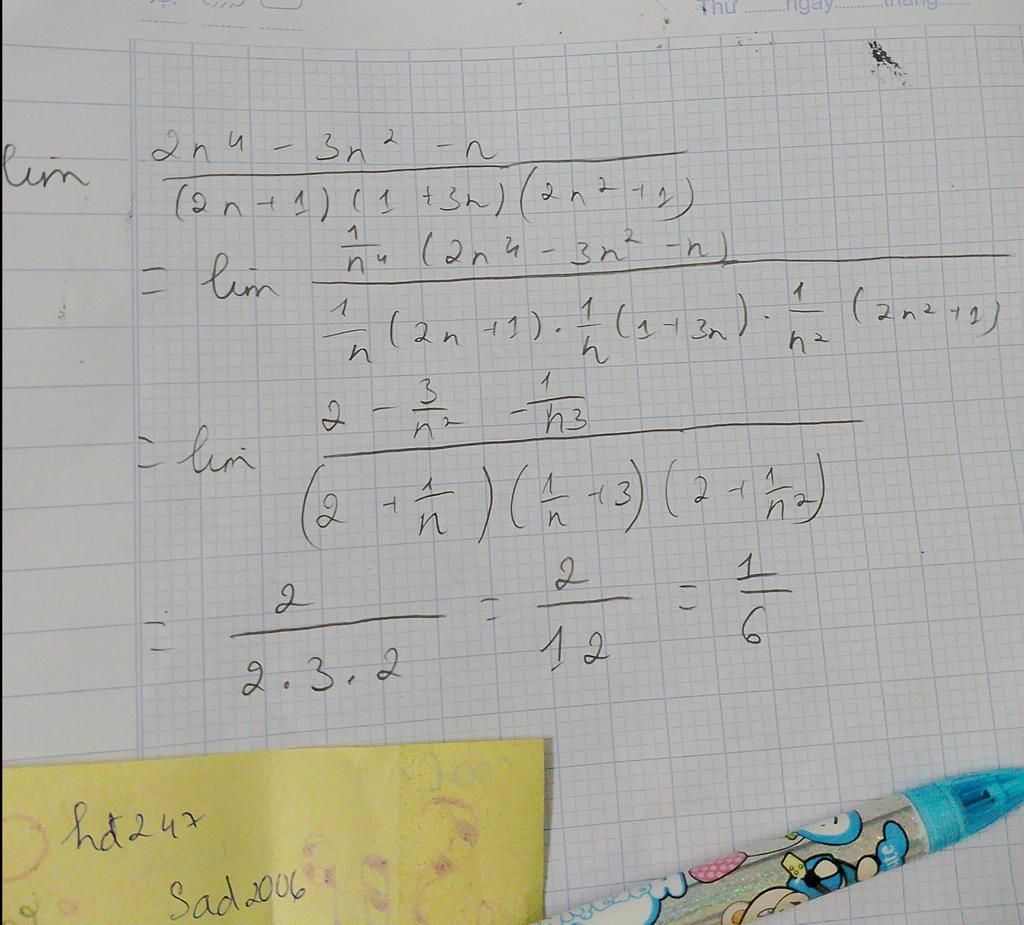 Thứ ..........ngày..........tháng........
lim (2n⁴ - 3n² - n)/((2n + 1)(1 + 3n)(2n² + 1))
= lim (1/n⁴ (2n⁴ - 3n² - n))/(1/n (2n + 1) . 1/n (1 + 3n) . 1/n² (2n² + 1))
= lim (2 - 3/n² - 1/n3)/((2 + 1/n)(1/n + 3)(2 + 1/n2))
= 2/(2 . 3 . 2) = 2/12 = 1/6
hd247
Sad2006